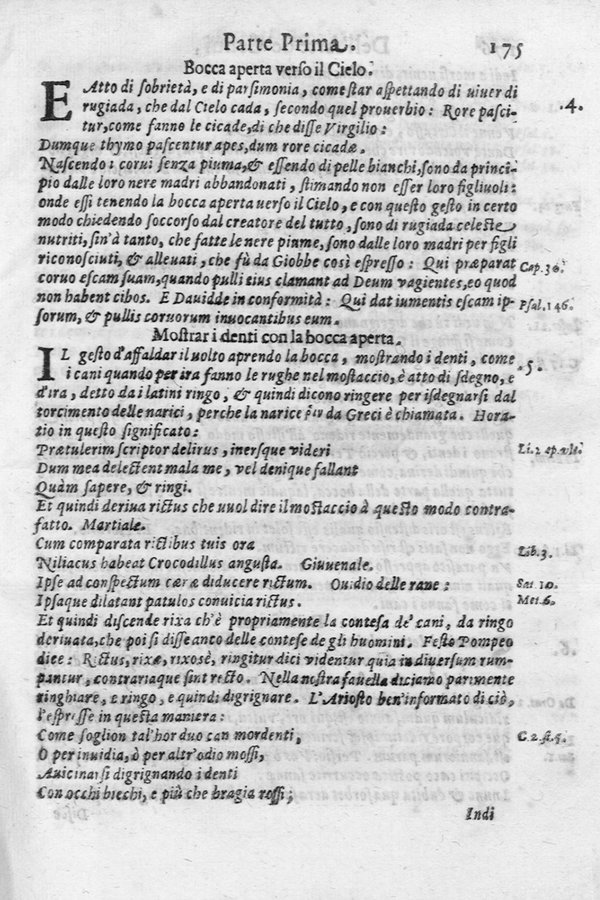 Parte Prima. 175
Bocca aperta verso il Cielo.
E Atto di sobrietà, e di parsimonia, come star aspettando di uiuer di
rugiada, che dal Cielo cada, secondo quel prouerbio: Rore pasci-
tur, come fanno le cicade, di che disse Virgilio: .4.
Dumque thymo pascentur apes, dum rore cicadæ.
Nascendo i corui senza piuma, & essendo di pelle bianchi, sono da princi-
pio dalle loro nere madri abbandonati, stimando non esser loro figliuoli:
onde essi tenendo la bocca aperta uerso il Cielo, e con questo gesto in certo
modo chiedendo soccorso dal creatore del tutto, sono di rugiada celeste
nutriti, sin'à tanto, che fatte le nere piume, sono dalle loro madri per figli
riconosciuti, & alleuati, che fù da Giobbe così espresso: Qui præparat
coruo escam suam, quando pulli eius clamant ad Deum vagientes, eo quod Cap. 38.
non habent cibos. E Dauidde in conformità: Qui dat iumentis escam ip-
sorum, & pullis coruorum inuocantibus eum. Psal. 146.
Mostrar i denti con la bocca aperta.
IL gesto d'affaldar il uolto aprendo la bocca, mostrando i denti, come
i cani quando per ira fanno le rughe nel mostaccio, è atto di sdegno, e .5.
d'ira, detto da i latini ringo, & quindi dicono ringere per isdegnarsi dal
torcimento delle narici, perche la narice ῥὶν da Greci è chiamata. Hora-
tio in questo significato:
Prætulerim scriptor delirus, inersque videri Li. 2 ep. vlt.
Dum mea delectent mala me, vel denique fallant
Quàm sapere, & ringi.
Et quindi deriua rictus che uuol dire il mostaccio à questo modo contra-
fatto. Martiale.
Cum comparata rictibus tuis ora Lib. 3.
Niliacus habeat Crocodillus angusta. Giuuenale.
Ipse ad conspectum cænæ diducere rictum. Ouidio delle rane: Sat. 10.
Ipsaque dilatant patulos conuicia rictus. Met. 6.
Et quindi discende rixa ch'è propriamente la contesa de' cani, da ringo
deriuata, che poi si disse anco delle contese de gli huomini. Festo Pompeo
dice: Rictus, rixæ, rixosè, ringitur dici videntur quia in diuersum rum-
pantur, contrariaque sint recto. Nella nostra fauella diciamo parimente
ringhiare, e ringo, e quindi digrignare. L'Ariosto ben'informato di ciò,
l'espresse in questa maniera:
Come soglion tal'hor duo can mordenti, C. 2. st. 5.
O per inuidia, ò per altr'odio mossi,
Auicinarsi digrignando i denti
Con occhi biechi, e più che bragia rossi;
Indi